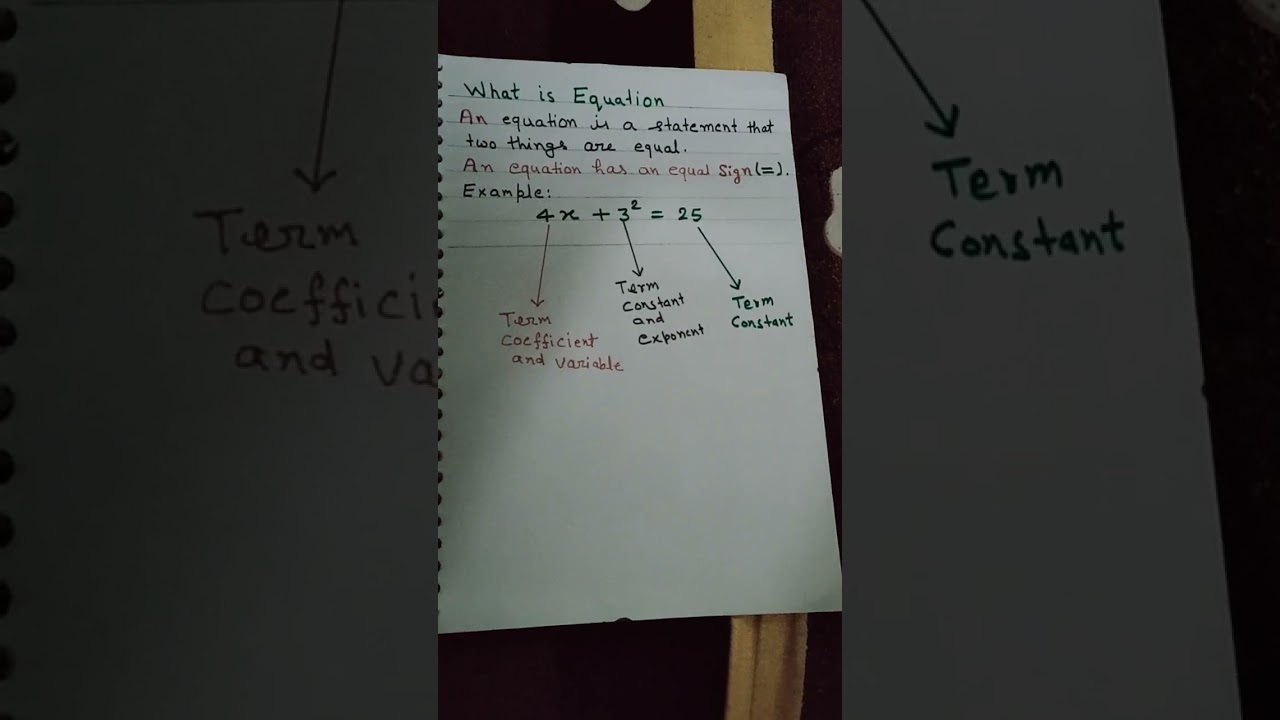 What is Equation
An equation is a statement that
two things are equal.
An equation has an equal sign (=).
Example:
4x + 3² = 25
Term
coefficient
and variable
Term
constant
and
exponent
Term
constant
Term
coeffici
and va
Term
Constant